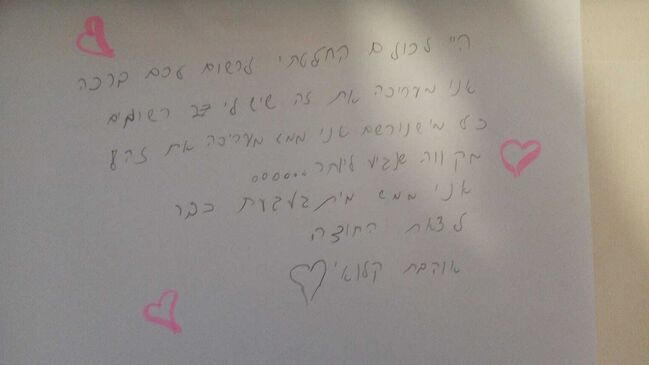 היי לכולם החלטתי לרשום לכם ברכה
אני מעריכה את זה שיש לי כבר רשומים
כל מי שנרשם אני ממש מעריכה את זה
מקווה שנגיע ליותר......
אני ממש כבר
לצאת החוצה
אוהבת קלואי